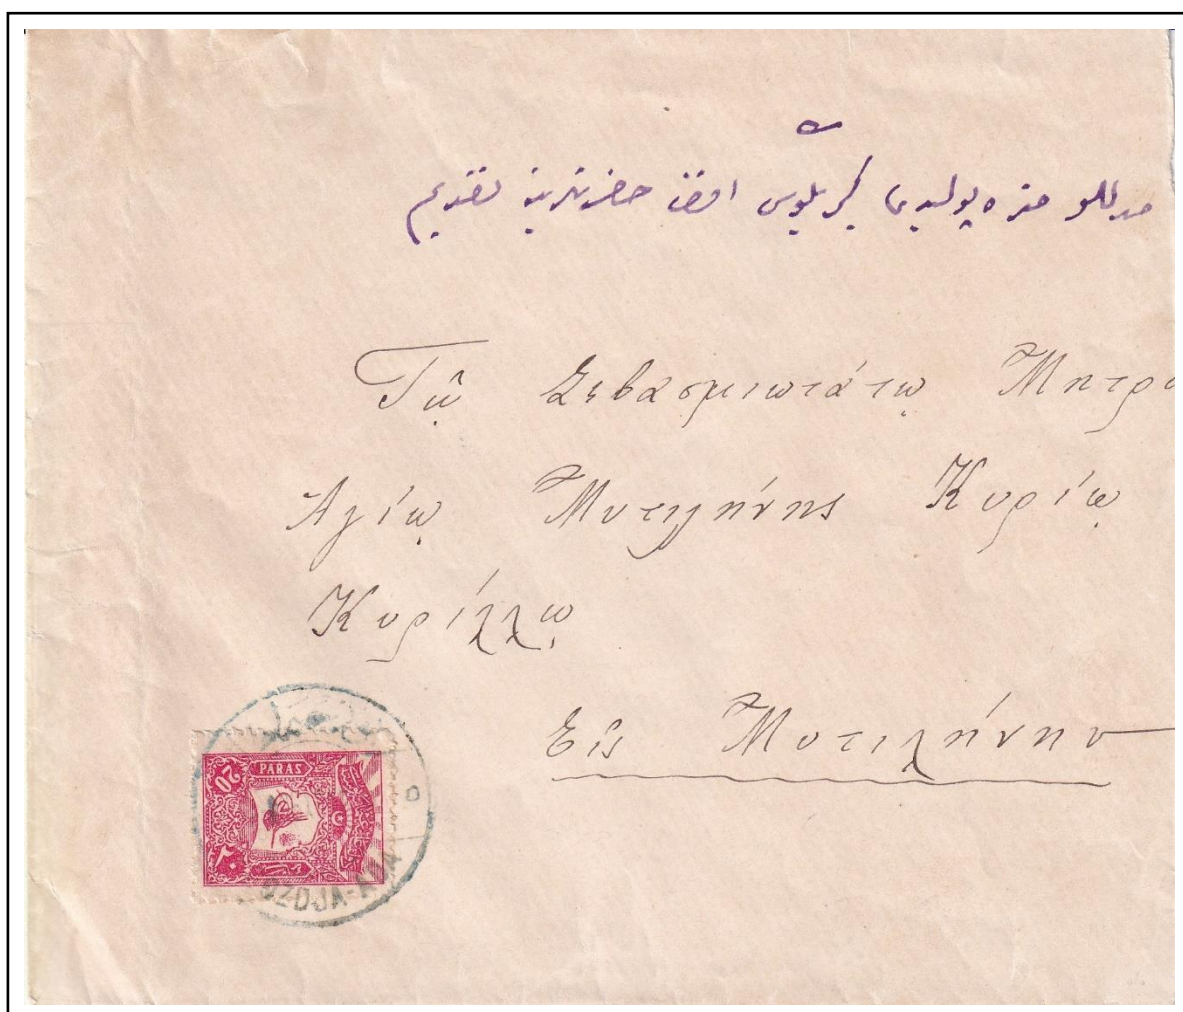 مدللو متره پوليدى كيريلوس افندى حضرتلرينه تقديم
Τῷ Σεβασμιωτάτῳ Μητρο
Ἁγίῳ Μυτιλήνης Κυρίῳ
Κυρίλλῳ
Εἰς Μυτιλήνην
20 PARAS
OZDJA-ADA